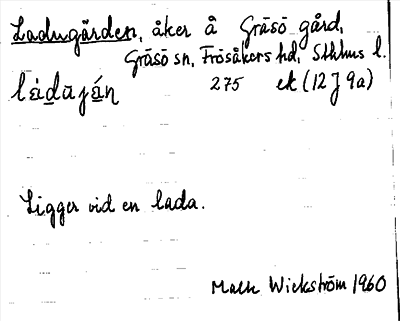 Ladugärden, åker å Gräsö gård,
Gräsö sn, Frösåkers hd, Sthlms l.
275 ek (12 J 9a)
Ligger vid en lada.
Wickström 1960